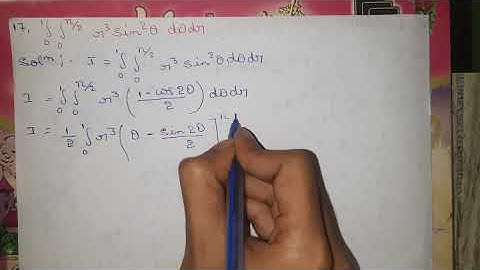 17. ∫₀¹ ∫₀^(π/2) r³ sin²θ dθdr
Soln:- I = ∫₀¹ ∫₀^(π/2) r³ sin²θ dθdr
I = ∫₀¹ ∫₀^(π/2) r³ ((1-cos2θ)/2) dθdr
I = 1/2 ∫₀¹ r³ (θ - sin2θ/2]